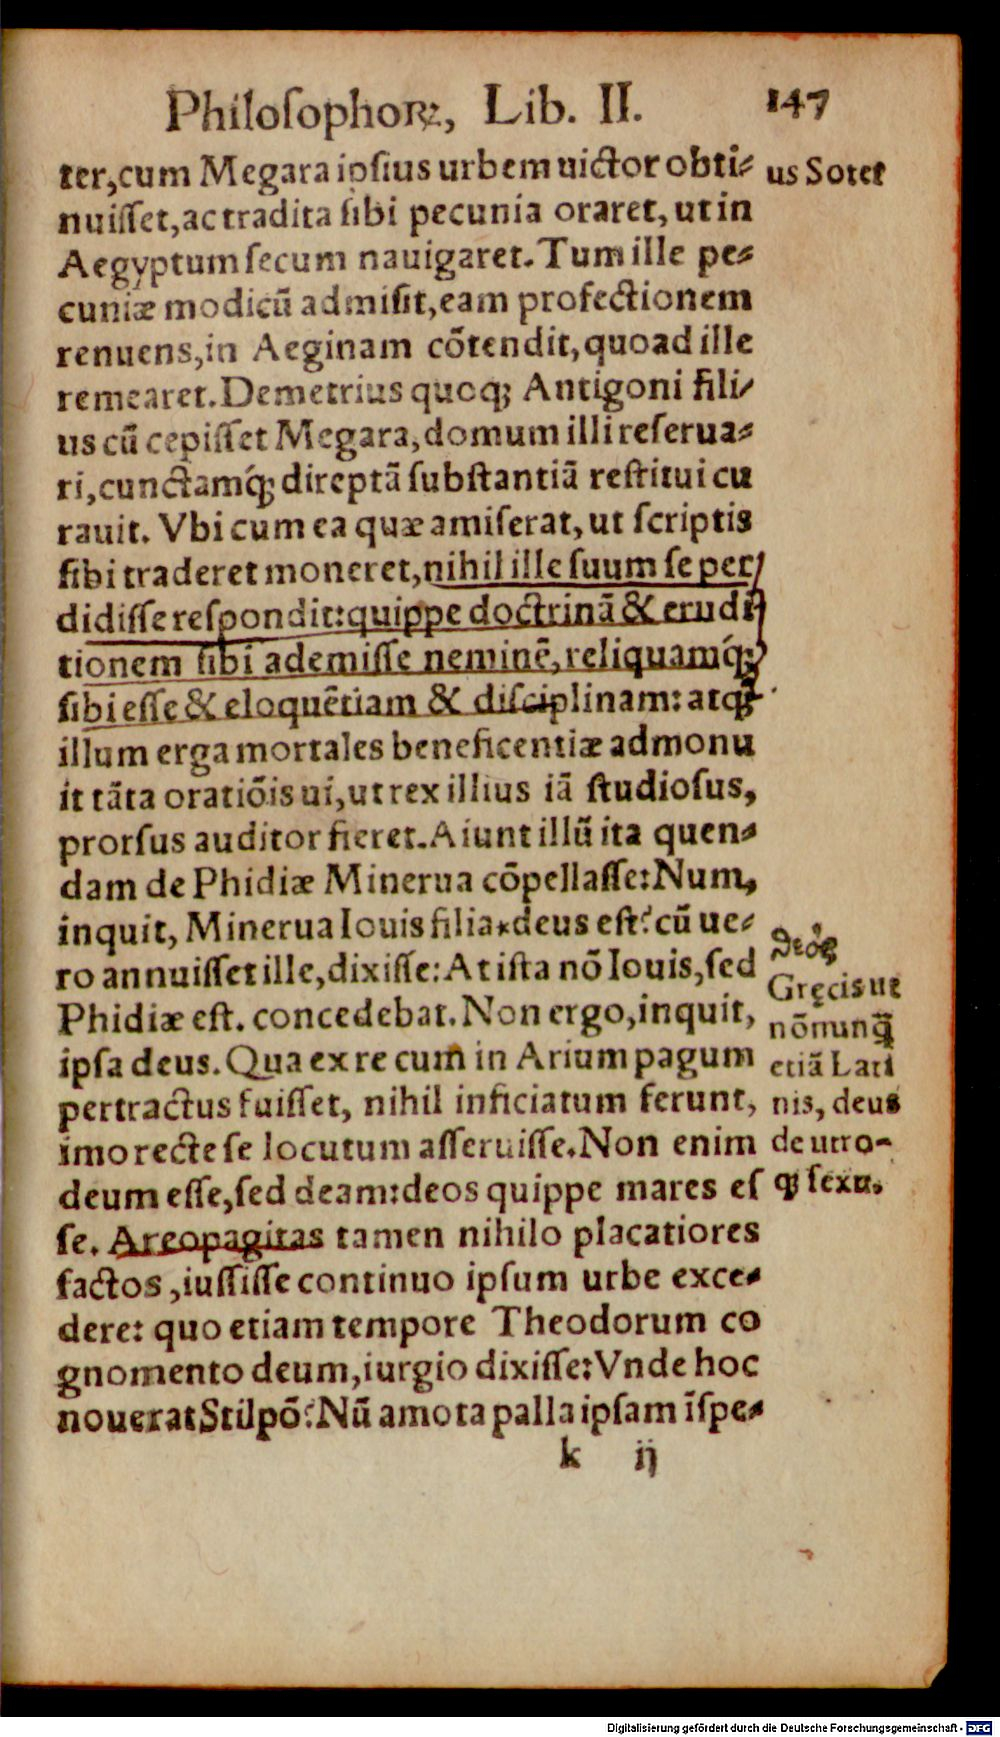 Philosophoꝝ, Lib. II. 147
ter, cum Megara ipsius urbem uictor obti⸗
nuisset, ac tradita sibi pecunia oraret, ut in
Aegyptum secum nauigaret. Tum ille pe⸗
cuniæ modicũ admisit, eam profectionem
renuens, in Aeginam cõtendit, quoad ille
remearet. Demetrius quoq; Antigoni fili/
us cũ cepisset Megara, domum illi reserua⸗
ri, cunctamq́; direptã substantiã restitui cu
rauit. Vbi cum ea quæ amiserat, ut scriptis
sibi traderet moneret, nihil ille suum se per/
didisse respondit: quippe doctrinã & erudi
tionem sibi ademisse neminẽ, reliquamq́;
sibi esse & eloquẽtiam & disciplinam: atq;
illum erga mortales beneficentiæ admonu
it tãta oratiõis ui, ut rex illius iã studiosus,
prorsus auditor fieret. Aiunt illũ ita quen⸗
dam de Phidiæ Minerua cõpellasse: Num,
inquit, Minerua Iouis filia *deus est? cũ ue⸗
ro annuisset ille, dixisse: At ista nõ Iouis, sed
Phidiæ est. concedebat. Non ergo, inquit,
ipsa deus. Qua ex re cum in Arium pagum
pertractus fuisset, nihil inficiatum ferunt,
imo recte se locutum asseruisse. Non enim
deum esse, sed deam: deos quippe mares es
se. Areopagitas tamen nihilo placatiores
factos, iussisse continuo ipsum urbe exce⸗
dere: quo etiam tempore Theodorum co
gnomento deum, iurgio dixisse: Vnde hoc
nouerat Stilpõ? Nũ amota palla ipsam ĩspe⸗
k ij
us Soter
θεὸς
Gręcis ut
nõnunꝙ̃
etiã Lati
nis, deus
de utro-
ꝙ sexu.
Digitalisierung gefördert durch die Deutsche Forschungsgemeinschaft - DFG